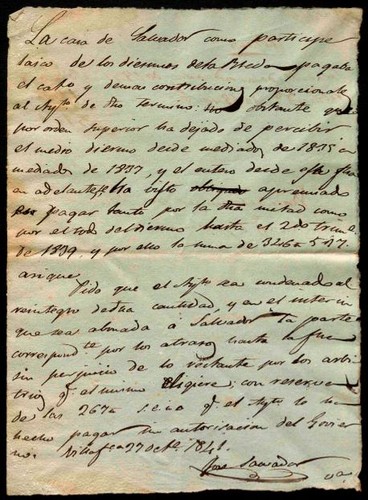 La casa de Salvador como participe
laico de los diezmos de la Bleda pagaba
el cato y demas contribucions proporcionale
al Ayto de dho termino. no obstante que
por orden superior ha dejado de percibir
el medio diezmo desde mediados de 1835
mediados de 1837, y el entero desde esta fha
en adelante, se ha visto apremiado
pagar tanto por la dha mitad como
por el todo del diezmo hasta el 2do trim.e
de 1839, y por ello la suma de
Pido que el Ayto sea condenado al
reintegro de dha cantidad, y en el interin
que sea abonada á Salvador la parte
correspondte por los atrasos hasta la fha
sin perjuicio de lo restante por los arbi
trios qe el mismo eligiere; con reserva
de las qe el Ayto le ha
hecho pagar sin autorizacion del Govier
no. Villafca 27 octe 1841.
José Salvador